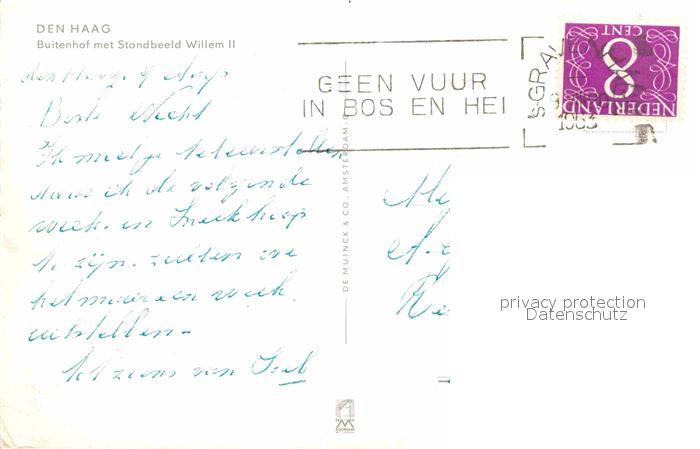 DEN HAAG
Buitenhof met Standbeeld Willem II
den Haag 9 Aug
Beste
Ik moet je teleurstellen
daar ik de volgende
week in Sneek hoop
te zijn. zullen we
het maar een week
uitstellen.
tot ziens van
GEEN VUUR
IN BOS EN HEI
'S-GRAV
9
1963
8
CENT
NEDERLAND
DE MUINCK & CO., AMSTERDAM
privacy protection
Datenschutz